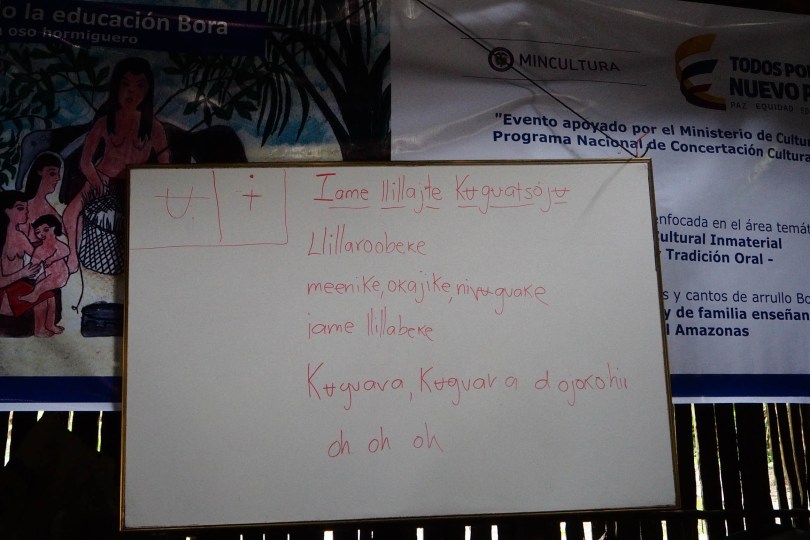 o la educación Bora
oso hormiguero
MINCULTURA
TODOS POR
NUEVO P
PAZ EQUIDAD
"Evento apoyado por el Ministerio de Cultu
Programa Nacional de Concertación Cultura
enfocada en el área temát
ultural Inmaterial
Tradición Oral -
s y cantos de arrullo Bo
y de familia enseñan
l Amazonas
ʉ ɨ
Iame llillajte Kʉguatsójʉ
Llillaroobeke
meenike, okajike, nivʉguake
jame llillabeke
Kʉguava, Kʉguava d ojokohii
oh oh oh